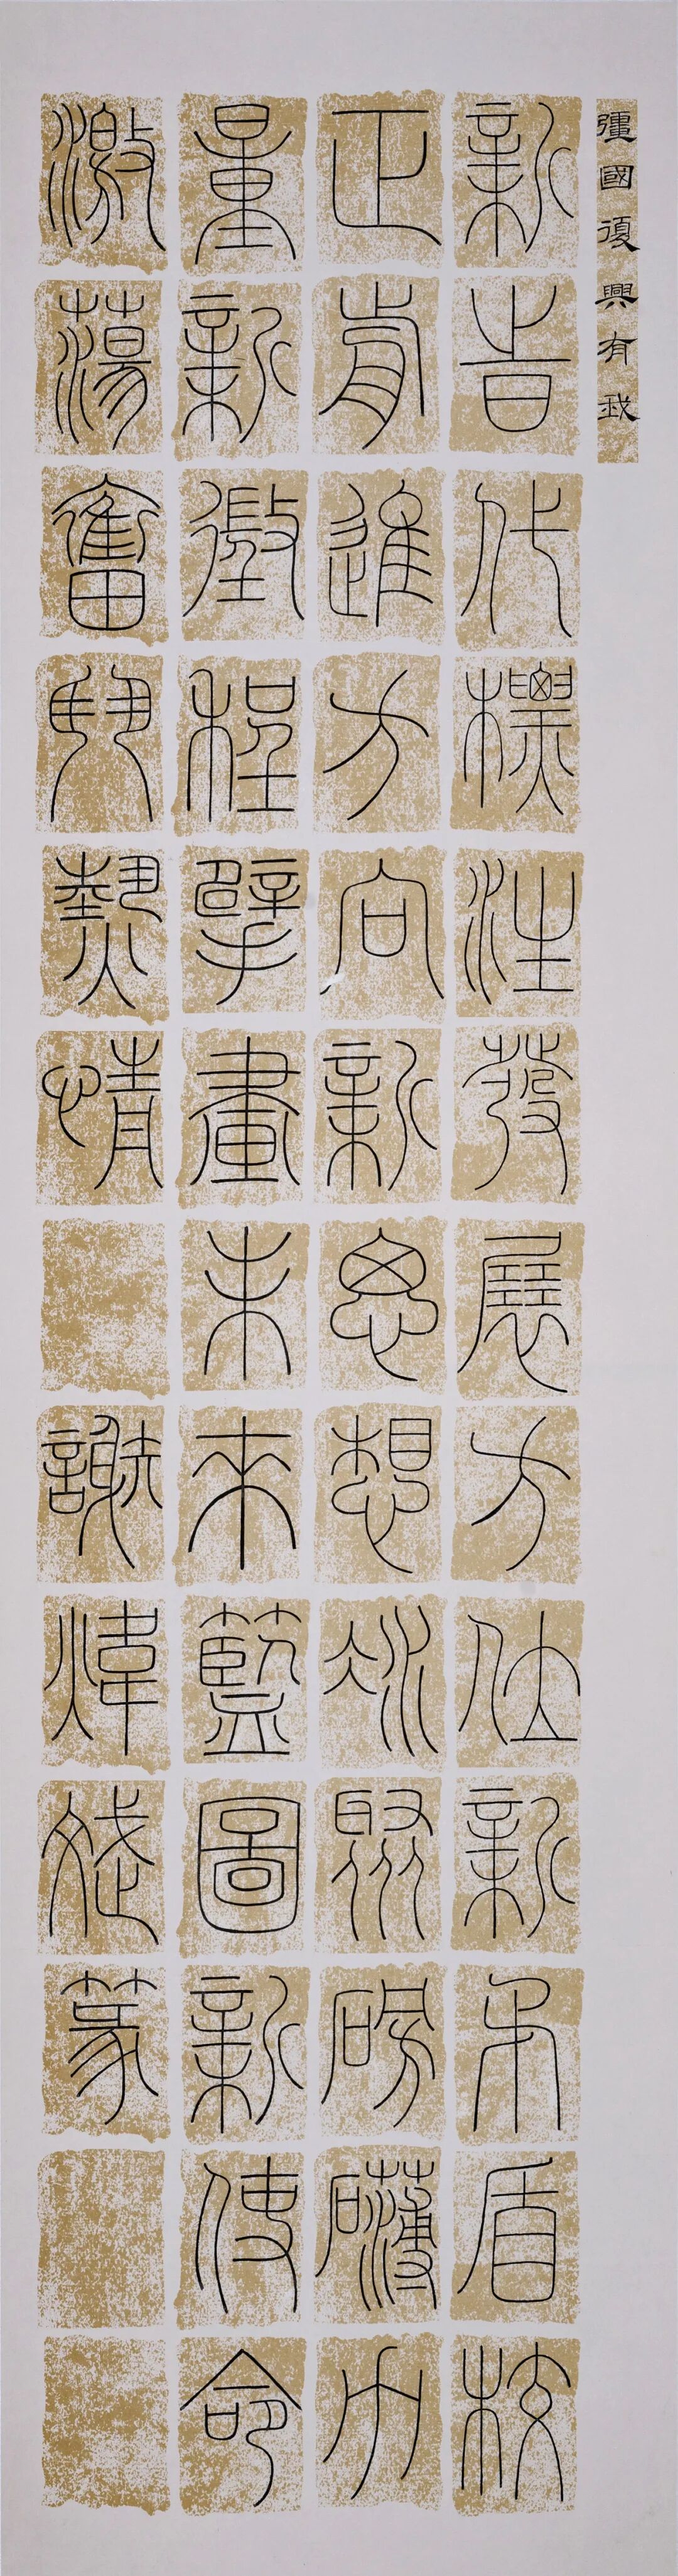 彊國復興有我
新旹代標注發展方位新矛盾校
正前進方向新思想凝聚磅礴力
量新徵程擘畫未來藍圖新使命
激蕩奮鬥熱情
謝煒斌篆